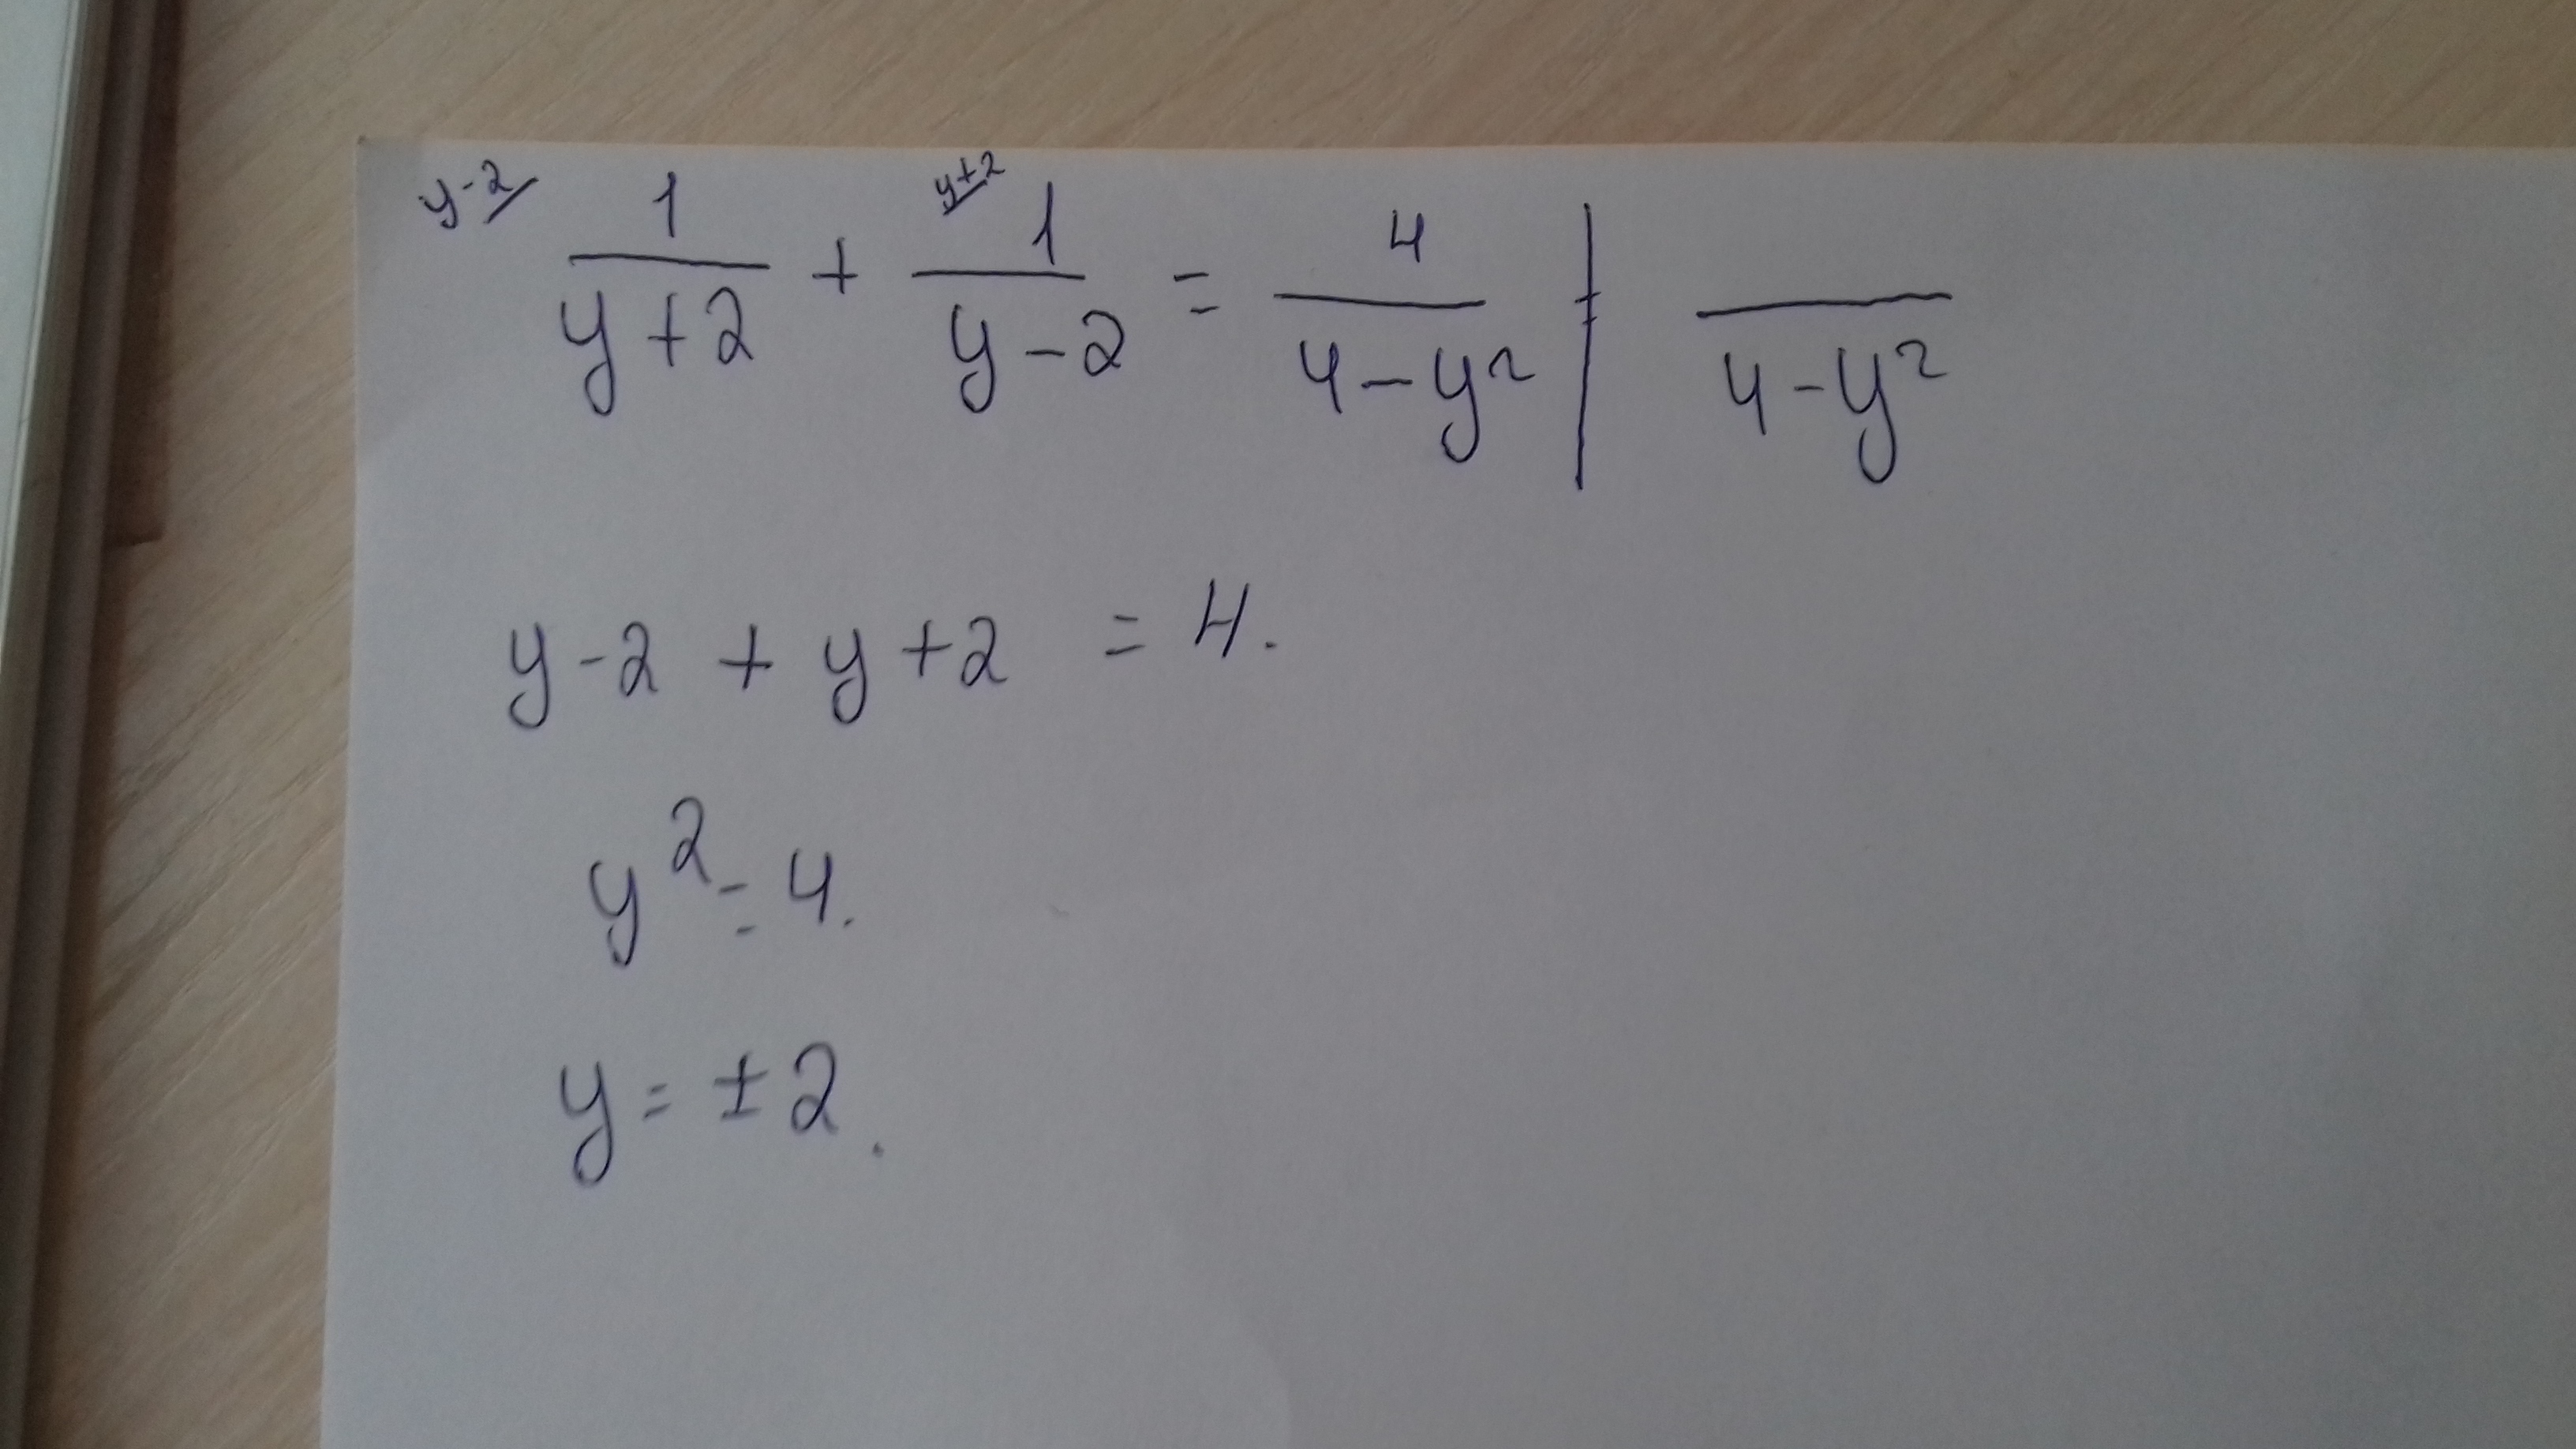 y-2/ 1/(y+2) + y+2/ 1/(y-2) = 4/(4-y²) | 1/(4-y²)
y-2 + y+2 = 4.
y² = 4.
y = ±2.